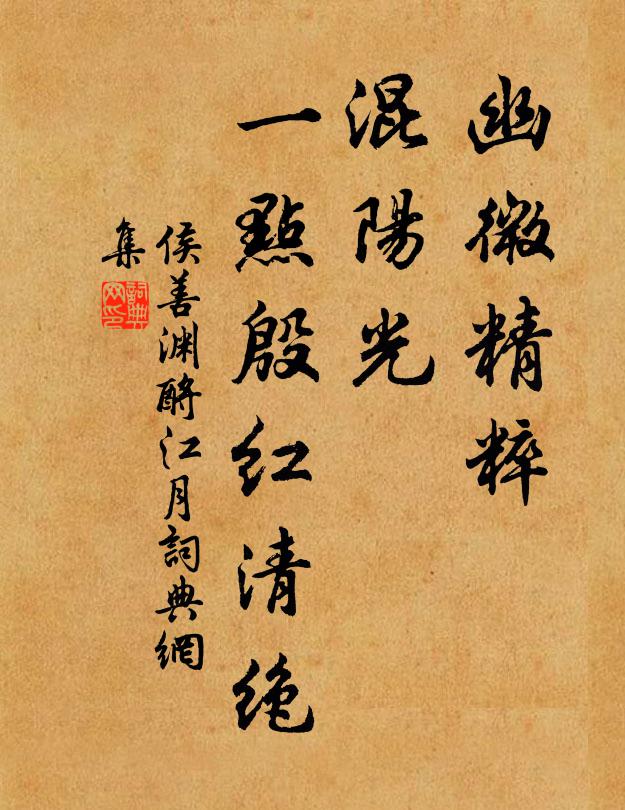 幽微精粹
混陽光
一點殷紅清絶
侯善渊酹江月詞典網
集
詞典
网印